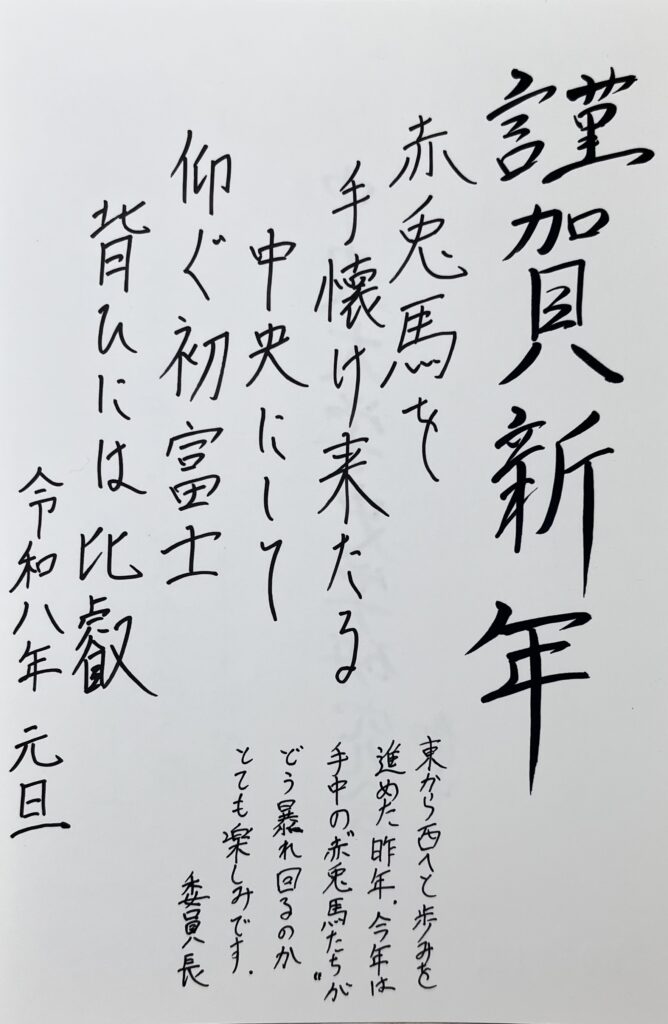 謹賀新年
赤兎馬を
手懐け来たる
中央にして
仰ぐ初富士
背ひには比叡
令和八年 元旦
東から西へと歩みを
進めた昨年。今年は
手中の"赤兎馬たちが"
どう暴れ回るのか
とても楽しみです。
委員長